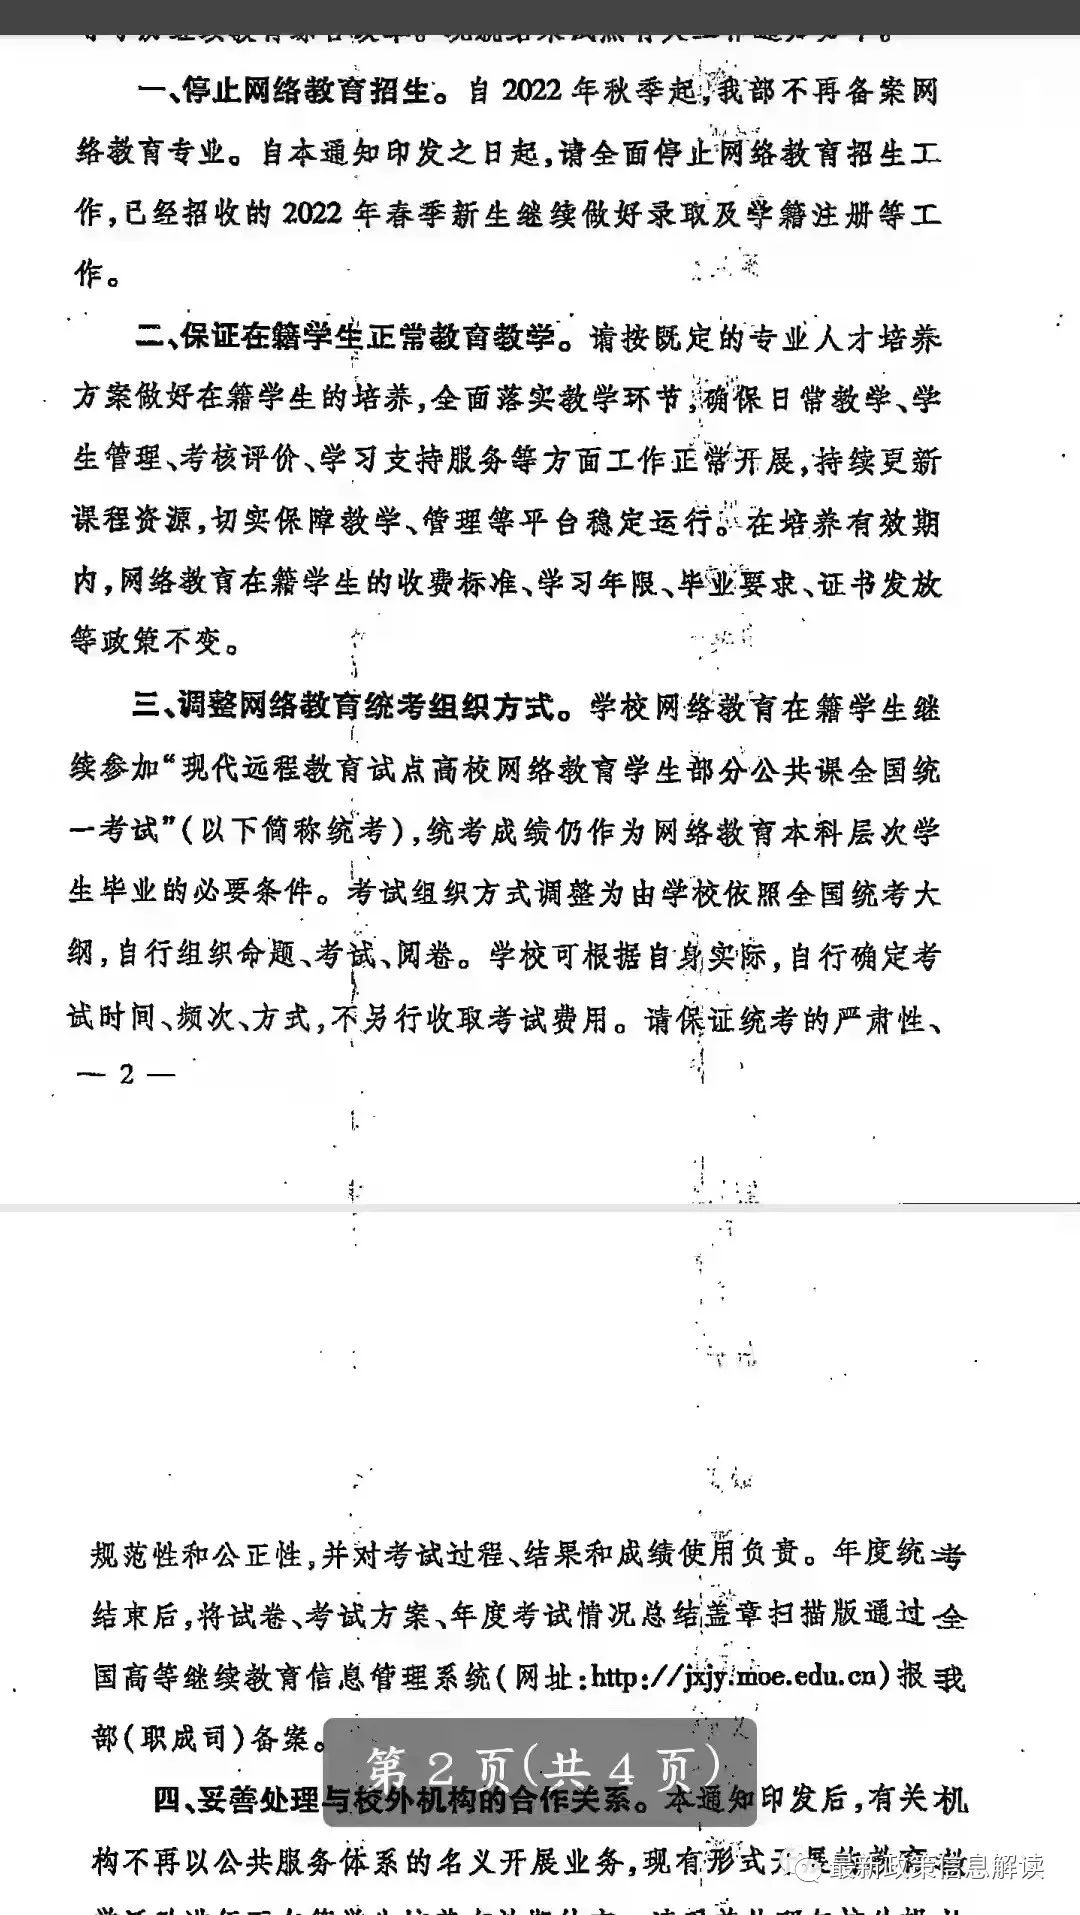 一、停止网络教育招生。自2022年秋季起,我部不再备案网
络教育专业。自本通知印发之日起,请全面停止网络教育招生工
作,已经招收的2022年春季新生继续做好录取及学籍注册等工
作。
二、保证在籍学生正常教育教学。请按既定的专业人才培养
方案做好在籍学生的培养,全面落实教学环节,确保日常教学、学
生管理、考核评价、学习支持服务等方面工作正常开展,持续更新
课程资源,切实保障教学、管理等平台稳定运行。在培养有效期
内,网络教育在籍学生的收费标准、学习年限、毕业要求、证书发放
等政策不变。
三、调整网络教育统考组织方式。学校网络教育在籍学生继
续参加“现代远程教育试点高校网络教育学生部分公共课全国统
一考试”(以下简称统考),统考成绩仍作为网络教育本科层次学
生毕业的必要条件。考试组织方式调整为由学校依照全国统考大
纲,自行组织命题、考试、阅卷。学校可根据自身实际,自行确定考
试时间、频次、方式,不另行收取考试费用。请保证统考的严肃性、
— 2 —
规范性和公正性,并对考试过程、结果和成绩使用负责。年度统考
结束后,将试卷、考试方案、年度考试情况总结盖章扫描版通过全
国高等继续教育信息管理系统(网址:http://jxjy.moe.edu.cn)报我
部(职成司)备案。
第2页(共4页)
四、妥善处理与校外机构的合作关系。本通知印发后,有关机
构不再以公共服务体系的名义开展业务,现有形式开展的教育教
最新政策信息解读